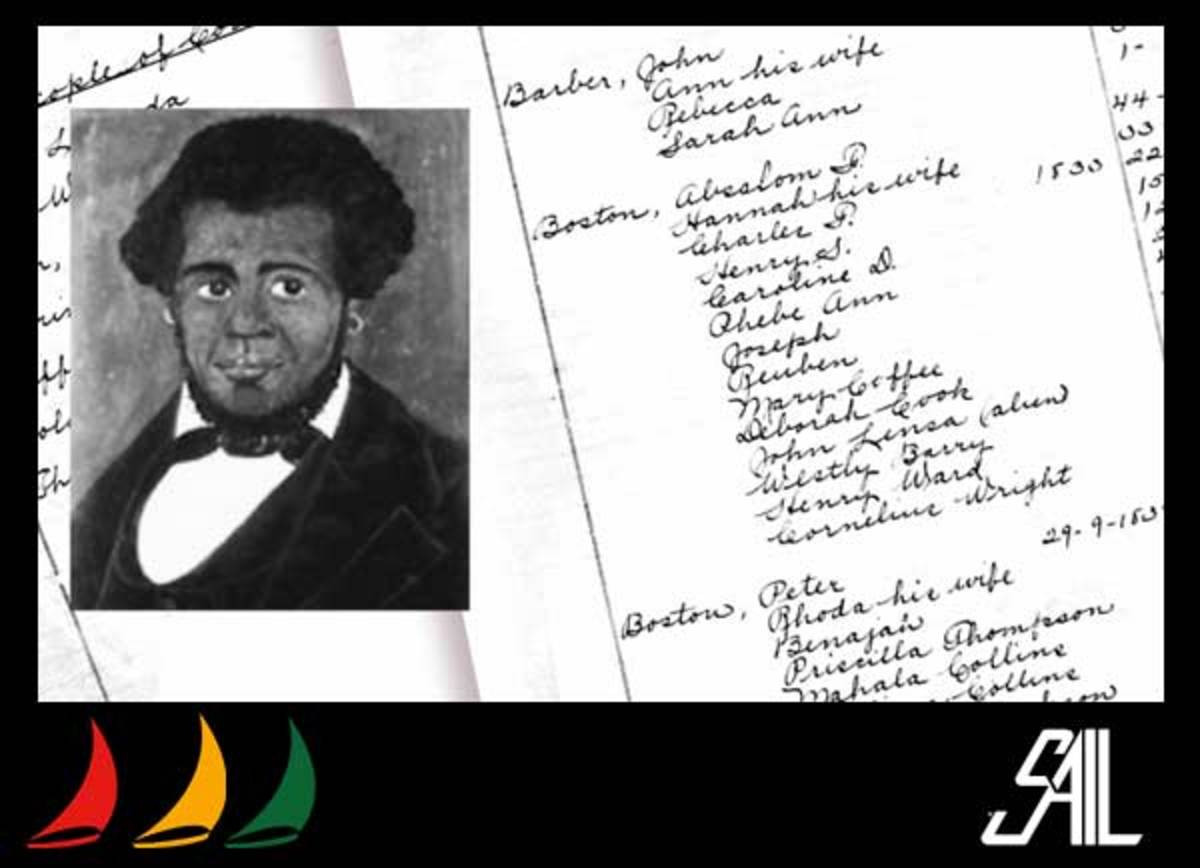 ople of Co
da
Barber, John
Ann his wife
Rebecca
Sarah Ann
1-
44-
33
Boston, Absalom F. 1830 22
Hannah his wife 15
Charles F.
Henry S.
Caroline D.
Phebe Ann
Joseph
Reuben
Mary Coffee
Deborah Cook
John Lensa (alien)
Westly Barry
Henry Ward
Cornelius Wright
29-9-183
Boston, Peter
Rhoda his wife
Benajah
Priscilla Thompson
Mahala Collins
Collins
son
SAIL